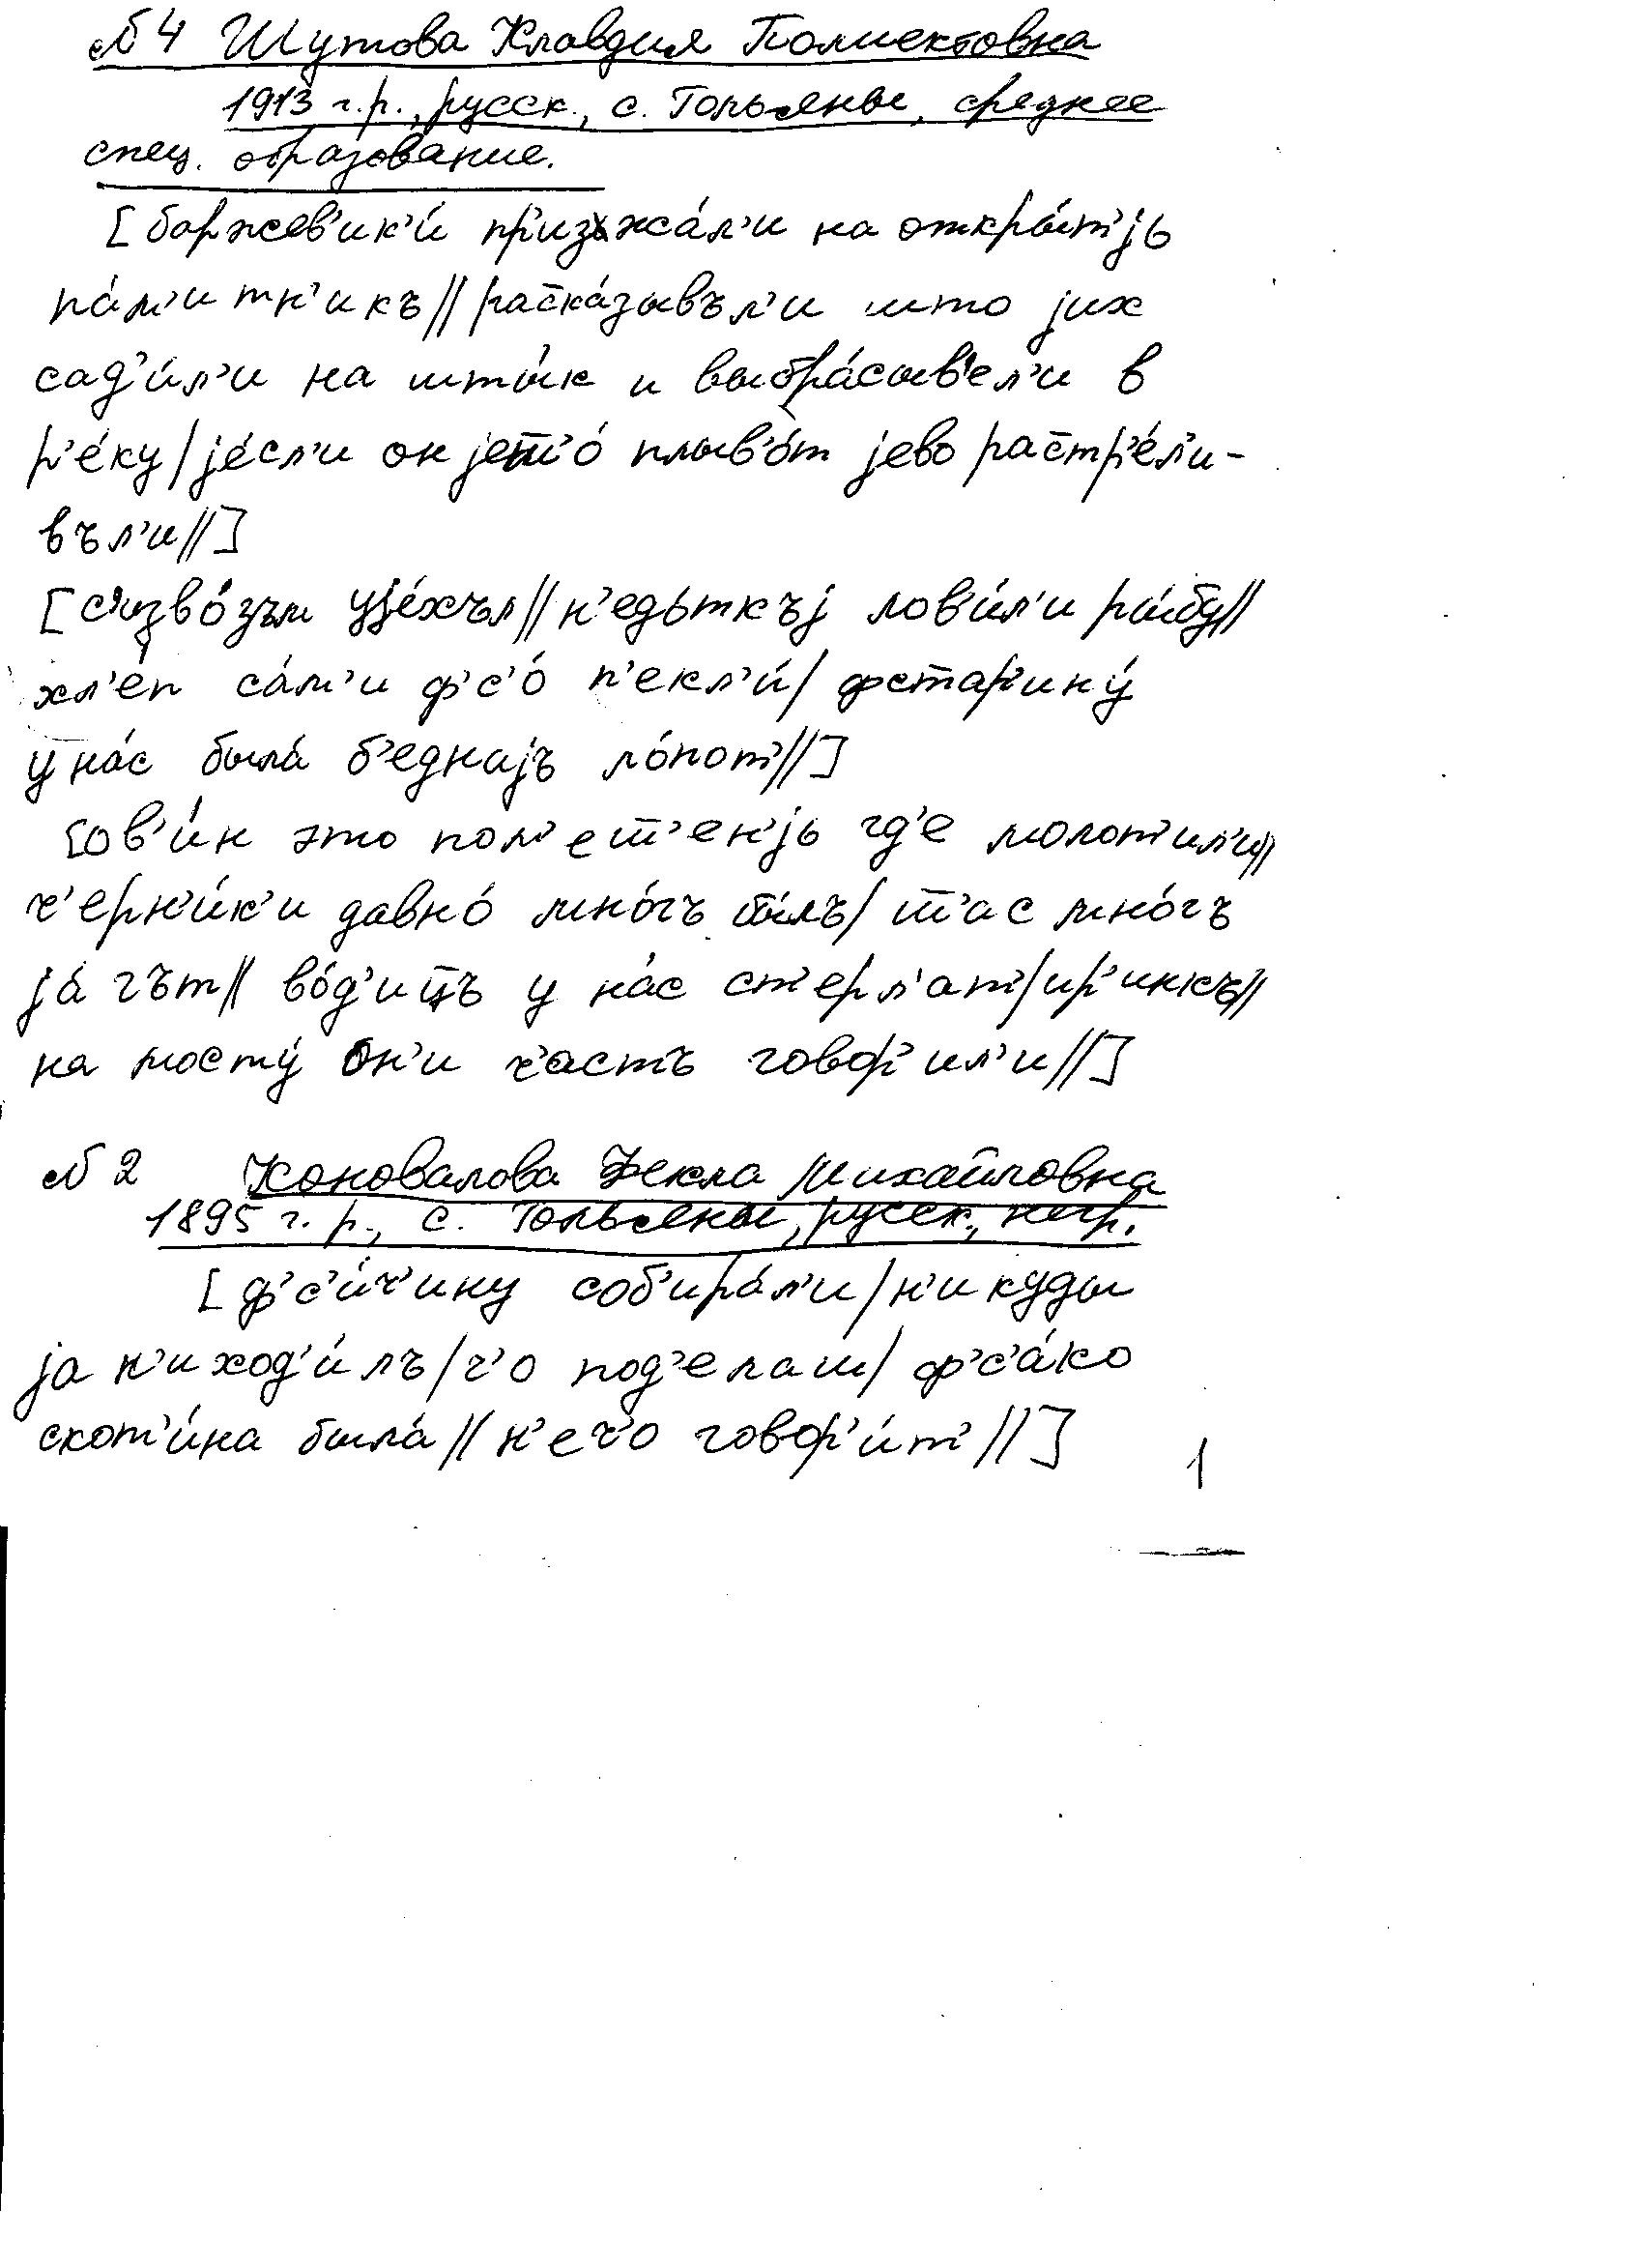 № 4 Шутова Клавдия Полиектовна
1913 г.р., русск., с. Гольяны, среднее
спец. образование.
[баржев'ик'и́ пр'изжа́л'и на откры́т'jь
па́м'итн'икъ// раска́зывъл'и што jих
сад'и́л'и на шты́к и выбра́сывел'и в
р'е́ку/ jе́сл'и он плыв'о́т jево растр'е́л'и-
въл'и//]
[с'извозъм уjе́хъл// н'едьткъj лов'и́л'и ры́бу//
хл'е́п са́м'и ф'с'о́ п'екл'и́/ фстар'ину́
у на́с была́ б'еднаjъ ло́пот'//]
[ов'и́н это гд'е молот'ил'и//
ч'ерн'и́к'и давно́ мно́гъ бы́лъ/ мно́гъ
jа́гът// во́д'ицъ у на́с ст'ерл'ат'/ир'инкъ//
на мосту́ он'и ч'астъ говор'ил'и//]
№ 2 Коновалова Фекла Михайловна
1895 г. р., с. Гольяны, русск., негр.
[ф'с'и́ч'ину соб'ира́л'и/ н'икуды
jа н'иход'и́лъ/ ч'о под'елаш/ ф'с'а́ко
скот'и́на была́// н'еч'о говор'и́т'//]
1